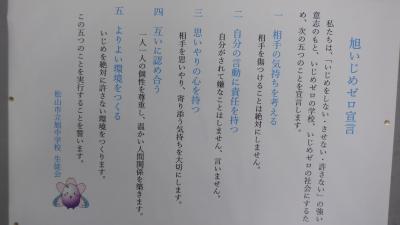 旭いじめゼロ宣言
私たちは、「いじめをしない・させない・許さない」の強い
意志のもと、いじめゼロの学校、いじめゼロの社会にするた
め、次の五つのことを宣言します。
一 相手の気持ちを考える
相手を傷つけることは絶対にしません。
二 自分の言動に責任を持つ
自分がされて嫌なことはしません、言いません。
三 思いやりの心を持つ
相手を思いやり、寄り添う気持ちを大切にします。
四 互いに認め合う
一人一人の個性を尊重し、温かい人間関係を築きます。
五 よりよい環境をつくる
いじめを絶対に許さない環境をつくります。
この五つのことを実行することを誓います。
松山市立旭中学校 生徒会